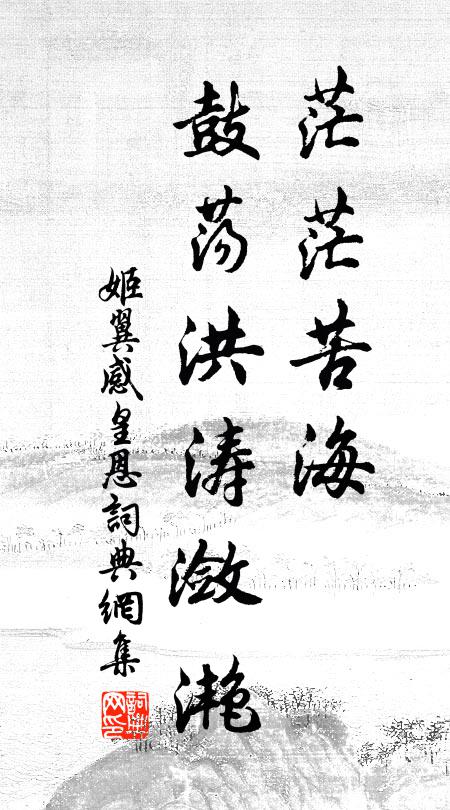 茫茫苦海
鼓荡洪涛潋滟
姬翼感皇恩詞典網集